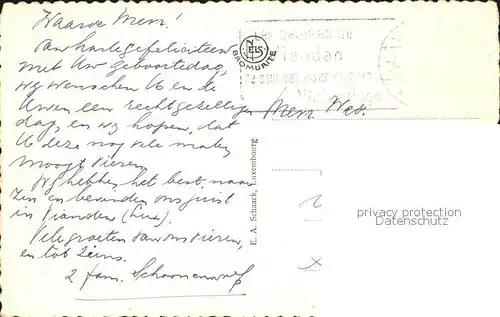 Waarde Mem!
Van harte gefeliciteerd
met Uw geboortedag,
wy wenschen U en de
Uwen een recht gezellige
dag, en wy hopen, dat
U deze nog vele malen
moogt vieren.
Wy hebben het best naar
Zin en bevinden ons juist
in Vianden (Lux).
Vele groeten van ons vieren,
en tot ziens.
fam. Schoonenwolf
Mem
ELS
BROMURITE
E. A. Schaack, Luxembourg
privacy protection
VDMedien24.de